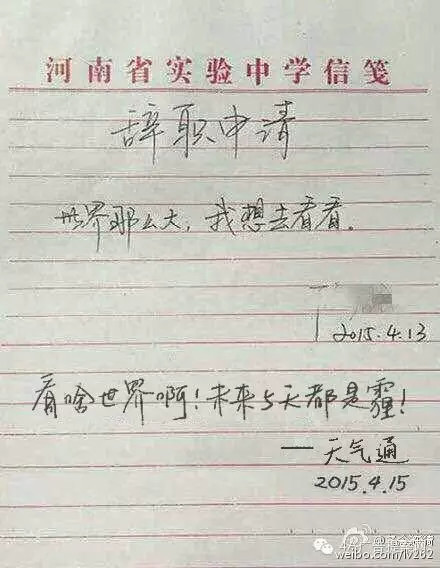 河南省实验中学信笺
辞职申请
世界那么大，我想去看看.
2015.4.13
看啥世界啊！未来5天都是霾！
——天气通
2015.4.15
weibo.com/lv262